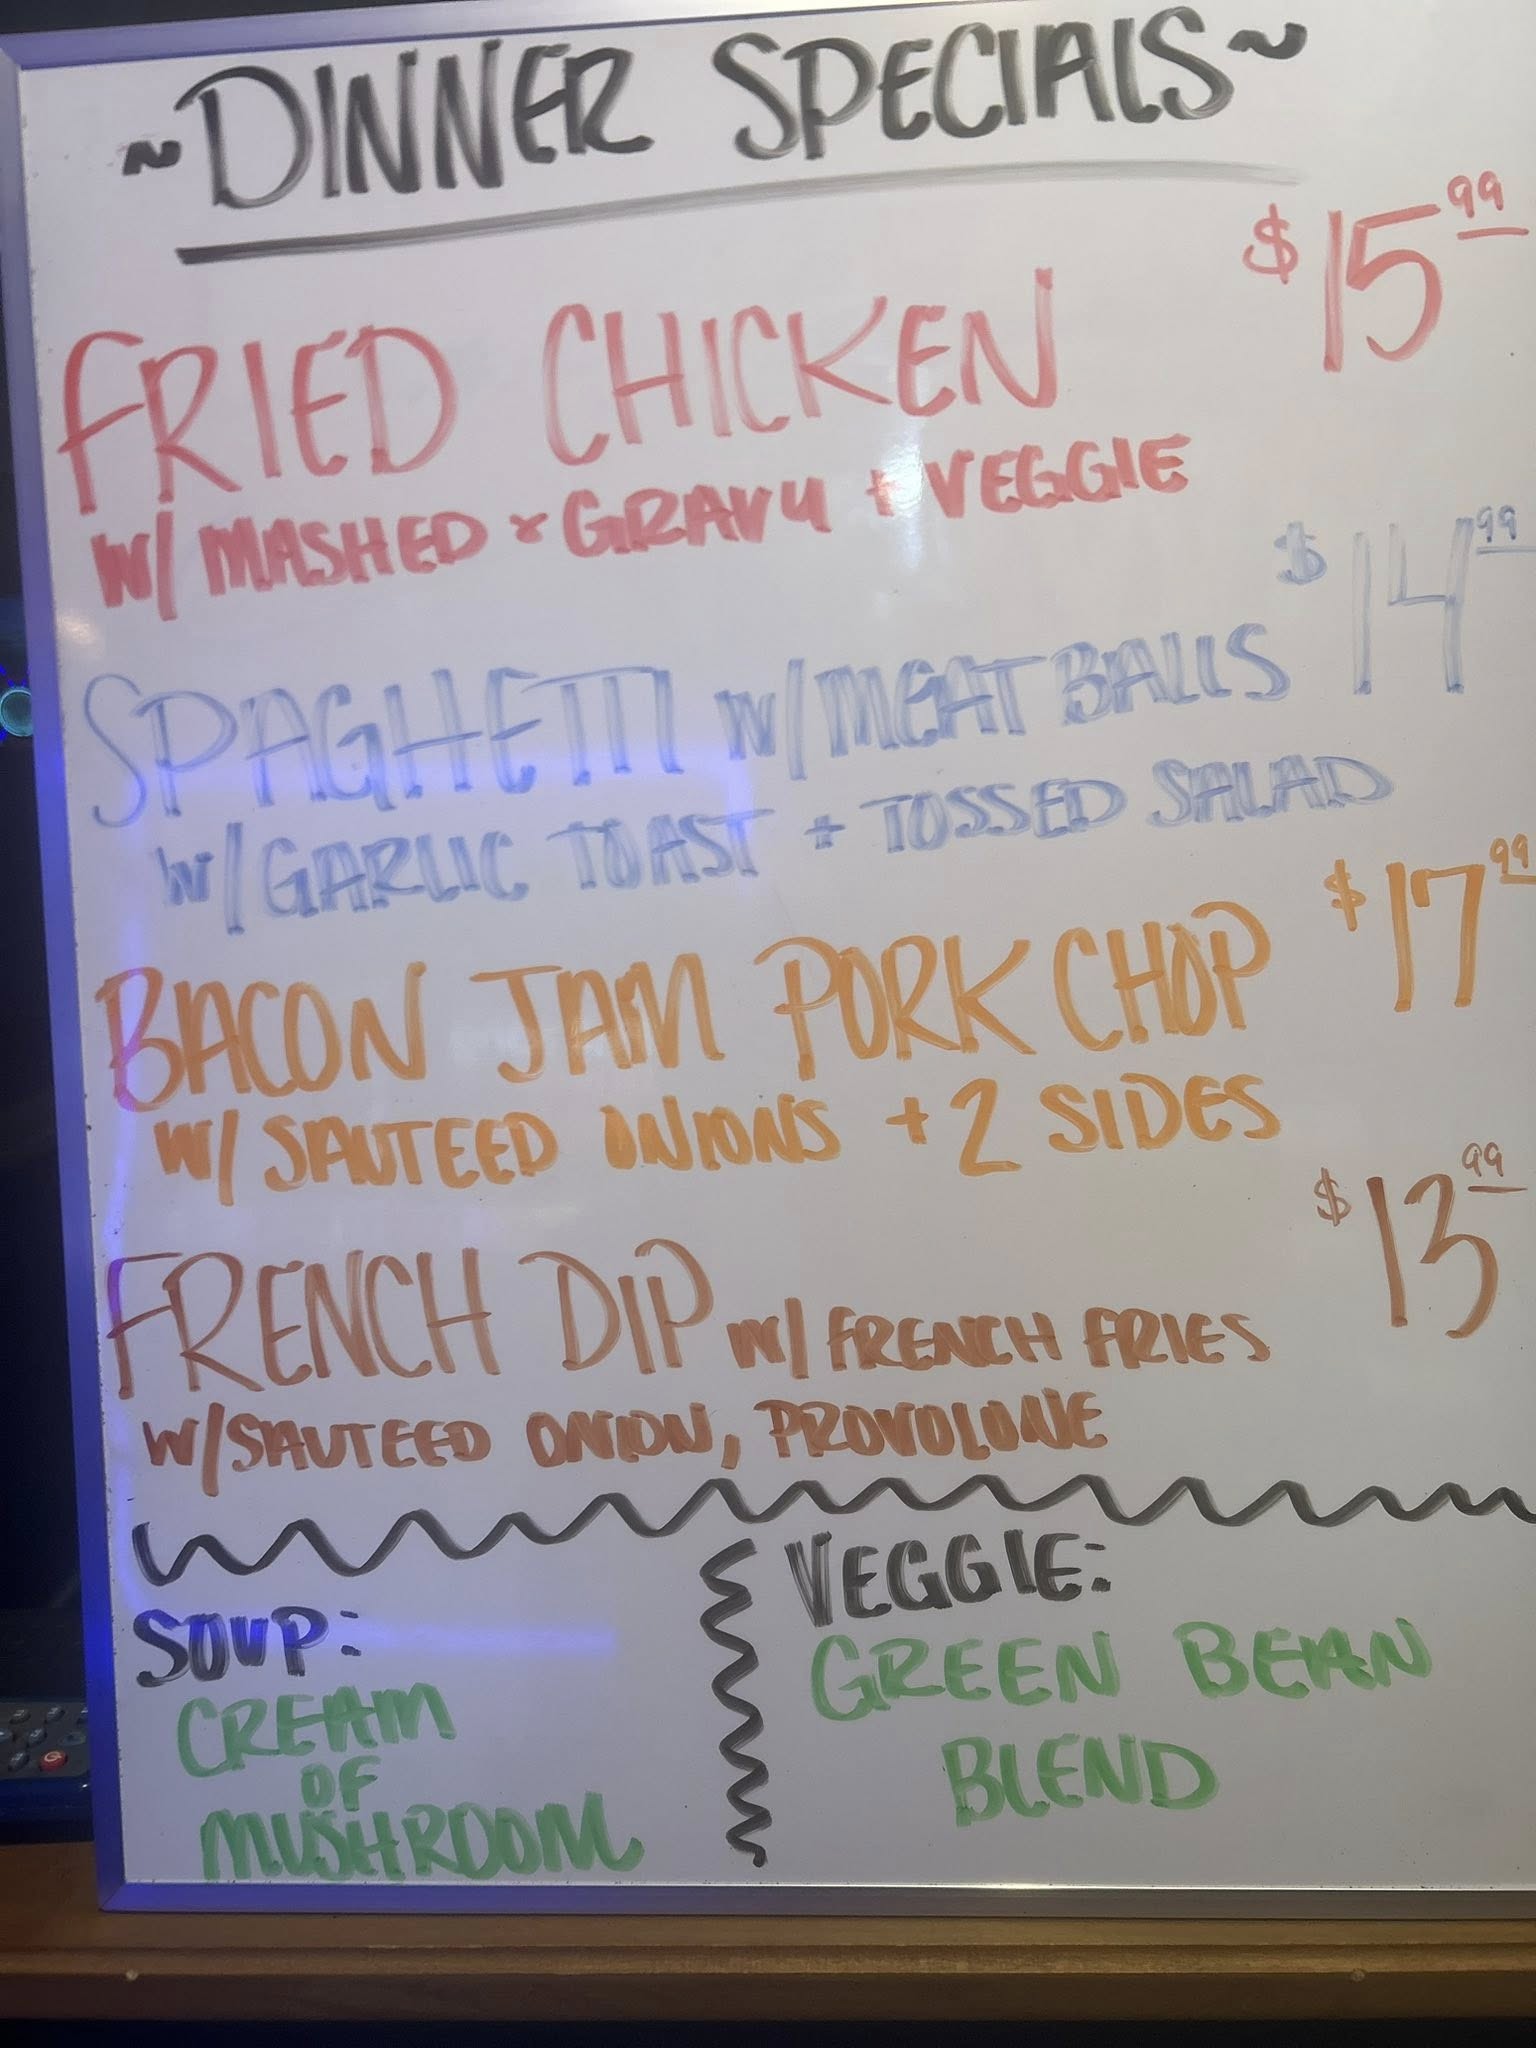 ~DINNER SPECIALS~
$15.99
FRIED CHICKEN
W/ MASHED & GRAVY + VEGGIE
$14.99
SPAGHETTI W/ MEATBALLS
W/ GARLIC TOAST + TOSSED SALAD
$17.99
BACON JAM PORK CHOP
W/ SAUTEED ONIONS + 2 SIDES
$13.99
FRENCH DIP W/ FRENCH FRIES
W/ SAUTEED ONION, PROVOLONE
SOUP:
CREAM
OF
MUSHROOM
VEGGIE:
GREEN BEAN
BLEND